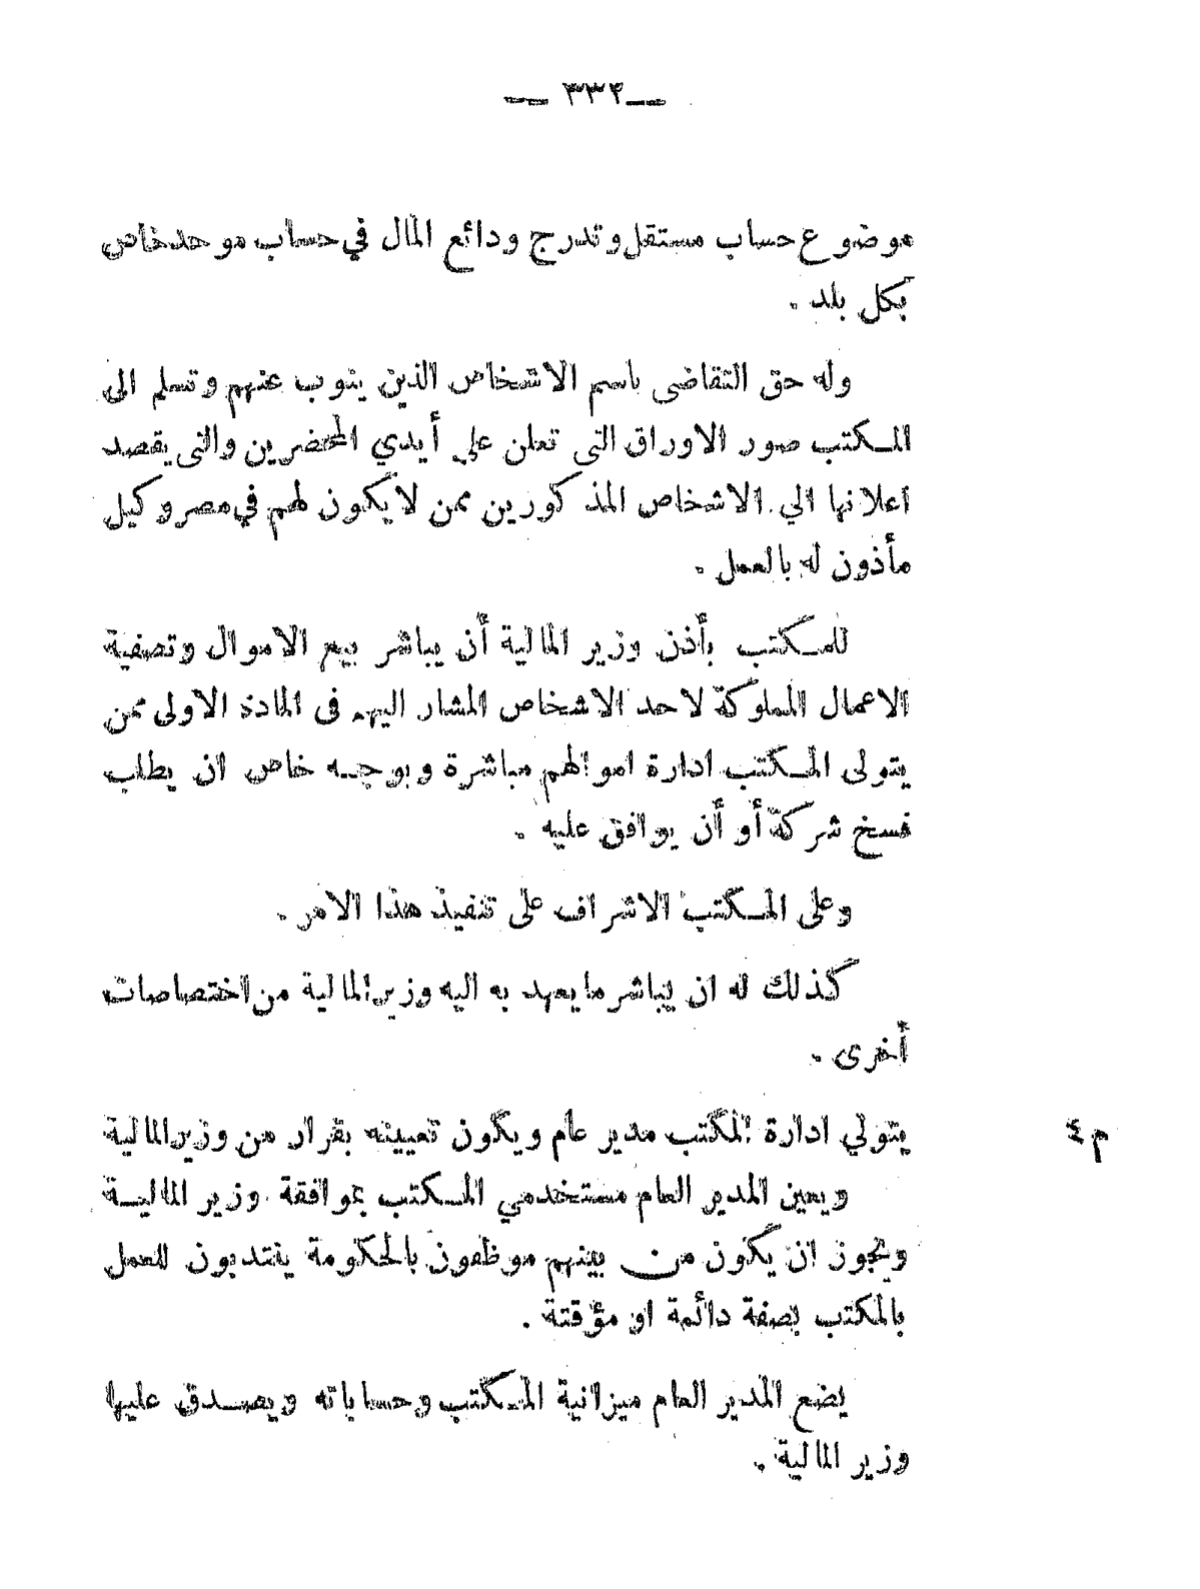 — ٣٣٢ —
موضوع حساب مستقل وتدرج ودائع المال في حساب موحد خاص
بكل بلد .
وله حق التقاضى باسم الاشخاص الذين ينوب عنهم وتسلم الى
المكتب صور الاوراق التى تعلن على أيدي المحضرين والتى يقصد
اعلانها الي الاشخاص المذكورين ممن لا يكون لهم في مصر وكيل
مأذون له بالعمل .
للمكتب بأذن وزير المالية أن يباشر بيع الاموال وتصفية
الاعمال المملوكة لاحد الاشخاص المشار اليهم فى المادة الاولى ممن
يتولى المكتب ادارة اموالهم مباشرة وبوجه خاص ان يطلب
فسخ شركة أو أن يوافق عليه .
وعلى المكتب الاشراف على تنفيذ هذا الامر .
كذلك له ان يباشر ما يعهد به اليه وزير المالية من اختصاصات
أخرى .
م ٤ يتولي ادارة المكتب مدير عام ويكون تعيينه بقرار من وزير المالية
ويعين المدير العام مستخدمي المكتب بموافقة وزير المالية
ويجوز ان يكون من بينهم موظفون بالحكومة ينتدبون للعمل
بالمكتب بصفة دائمة او مؤقتة .
يضع المدير العام ميزانية المكتب وحساباته ويصدق عليها
وزير المالية .